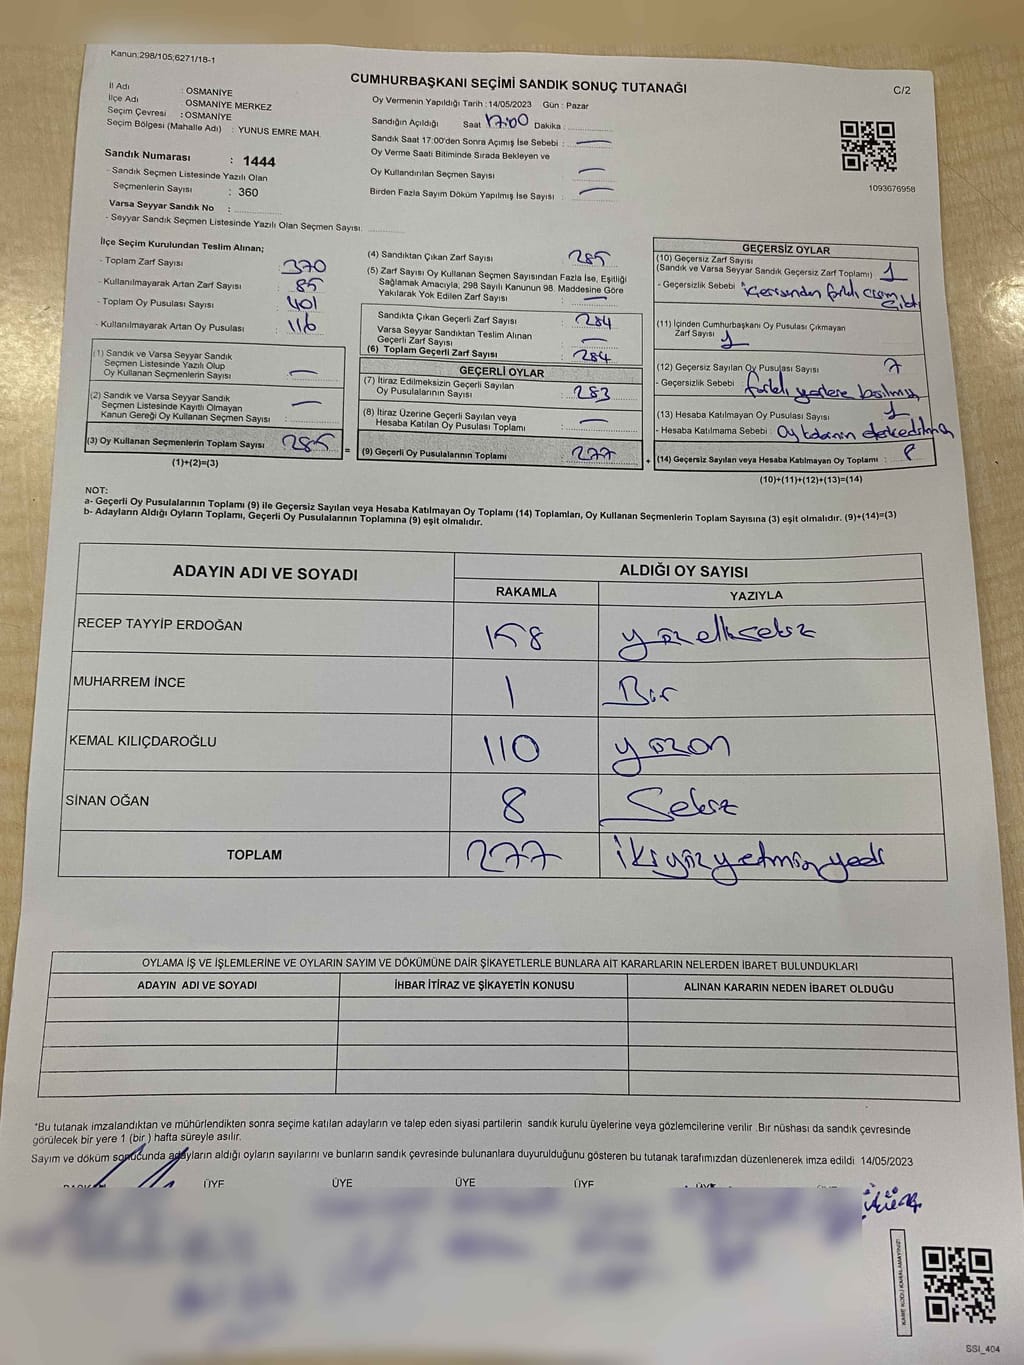 Kanun:298/105;6271/18-1
CUMHURBAŞKANI SEÇİMİ SANDIK SONUÇ TUTANAĞI
C/2
İl Adı : OSMANİYE
İlçe Adı : OSMANİYE MERKEZ
Seçim Çevresi : OSMANİYE
Seçim Bölgesi (Mahalle Adı) : YUNUS EMRE MAH.
Sandık Numarası : 1444
- Sandık Seçmen Listesinde Yazılı Olan
Seçmenlerin Sayısı : 360
Varsa Seyyar Sandık No :
- Seyyar Sandık Seçmen Listesinde Yazılı Olan Seçmen Sayısı:
Oy Vermenin Yapıldığı Tarih : 14/05/2023 Gün : Pazar
Sandığın Açıldığı Saat 17:00 Dakika :
Sandık Saat 17:00'den Sonra Açımış İse Sebebi : —
Oy Verme Saati Bitiminde Sırada Bekleyen ve
Oy Kullandırılan Seçmen Sayısı : —
Birden Fazla Sayım Döküm Yapılmış İse Sayısı : —
1093676958
İlçe Seçim Kurulundan Teslim Alınan;
- Toplam Zarf Sayısı : 370
- Kullanılmayarak Artan Zarf Sayısı : 85
- Toplam Oy Pusulası Sayısı : 401
- Kullanılmayarak Artan Oy Pusulası : 116
(1) Sandık ve Varsa Seyyar Sandık
Seçmen Listesinde Yazılı Olup
Oy Kullanan Seçmenlerin Sayısı : —
(2) Sandık ve Varsa Seyyar Sandık
Seçmen Listesinde Kayıtlı Olmayan
Kanun Gereği Oy Kullanan Seçmen Sayısı : —
(3) Oy Kullanan Seçmenlerin Toplam Sayısı 285 =
(1)+(2)=(3)
(4) Sandıktan Çıkan Zarf Sayısı : 285
(5) Zarf Sayısı Oy Kullanan Seçmen Sayısından Fazla İse, Eşitliği
Sağlamak Amacıyla, 298 Sayılı Kanunun 98. Maddesine Göre
Yakılarak Yok Edilen Zarf Sayısı : —
Sandıkta Çıkan Geçerli Zarf Sayısı : 284
Varsa Seyyar Sandıktan Teslim Alınan
Geçerli Zarf Sayısı : —
(6) Toplam Geçerli Zarf Sayısı : 284
GEÇERLİ OYLAR
(7) İtiraz Edilmeksizin Geçerli Sayılan
Oy Pusulalarının Sayısı : 283
(8) İtiraz Üzerine Geçerli Sayılan veya
Hesaba Katılan Oy Pusulası Toplamı : —
(9) Geçerli Oy Pusulalarının Toplamı : 277 +
GEÇERSİZ OYLAR
(10) Geçersiz Zarf Sayısı
(Sandık ve Varsa Seyyar Sandık Geçersiz Zarf Toplamı) : 1
- Geçersizlik Sebebi : içerisinden farklı cisim çıktı
(11) İçinden Cumhurbaşkanı Oy Pusulası Çıkmayan
Zarf Sayısı : 1
(12) Geçersiz Sayılan Oy Pusulası Sayısı : 7
- Geçersizlik Sebebi : farklı yerlere basılmış
(13) Hesaba Katılmayan Oy Pusulası Sayısı : 1
- Hesaba Katılmama Sebebi : Oy
(14) Geçersiz Sayılan veya Hesaba Katılmayan Oy Toplamı : 8
(10)+(11)+(12)+(13)=(14)
NOT:
a- Geçerli Oy Pusulalarının Toplamı (9) ile Geçersiz Sayılan veya Hesaba Katılmayan Oy Toplamı (14) Toplamları, Oy Kullanan Seçmenlerin Toplam Sayısına (3) eşit olmalıdır. (9)+(14)=(3)
b- Adayların Aldığı Oyların Toplamı, Geçerli Oy Pusulalarının Toplamına (9) eşit olmalıdır.
ADAYIN ADI VE SOYADI
ALDIĞI OY SAYISI
RAKAMLA YAZIYLA
RECEP TAYYİP ERDOĞAN 158 yüzellisekiz
MUHARREM İNCE 1 Bir
KEMAL KILIÇDAROĞLU 110 yüzon
SİNAN OĞAN 8 Sekiz
TOPLAM 277 ikiyüzyetmişyedi
OYLAMA İŞ VE İŞLEMLERİNE VE OYLARIN SAYIM VE DÖKÜMÜNE DAİR ŞİKAYETLERLE BUNLARA AİT KARARLARIN NELERDEN İBARET BULUNDUKLARI
ADAYIN ADI VE SOYADI İHBAR İTİRAZ VE ŞİKAYETİN KONUSU ALINAN KARARIN NEDEN İBARET OLDUĞU
"Bu tutanak imzalandıktan ve mühürlendikten sonra seçime katılan adayların ve talep eden siyasi partilerin sandık kurulu üyelerine veya gözlemcilerine verilir .Bir nüshası da sandık çevresinde
görülecek bir yere 1 (bir ) hafta süreyle asılır.
Sayım ve döküm sonucunda adayların aldığı oyların sayılarını ve bunların sandık çevresinde bulunanlara duyurulduğunu gösteren bu tutanak tarafımızdan düzenlenerek imza edildi 14/05/2023
ÜYE ÜYE ÜYE ÜYE ÜYE
SSI_404